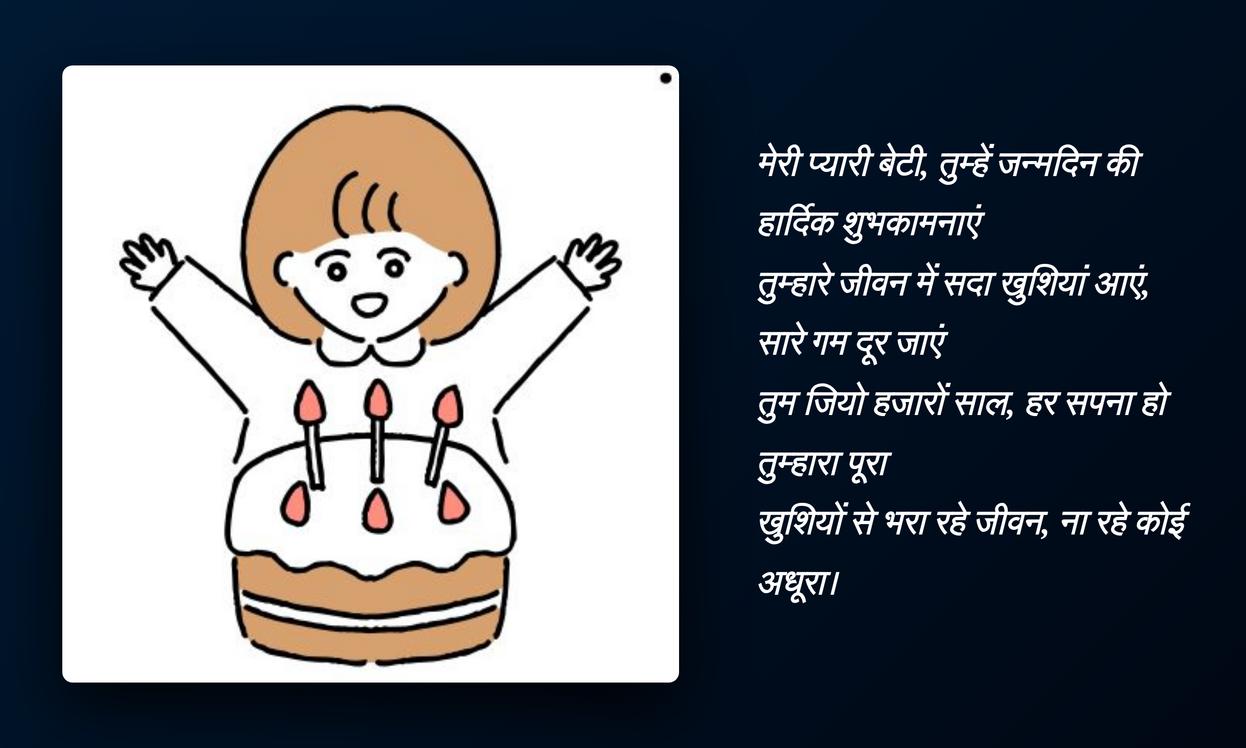 मेरी प्यारी बेटी, तुम्हें जन्मदिन की
हार्दिक शुभकामनाएं
तुम्हारे जीवन में सदा खुशियां आएं,
सारे गम दूर जाएं
तुम जियो हजारों साल, हर सपना हो
तुम्हारा पूरा
खुशियों से भरा रहे जीवन, ना रहे कोई
अधूरा।